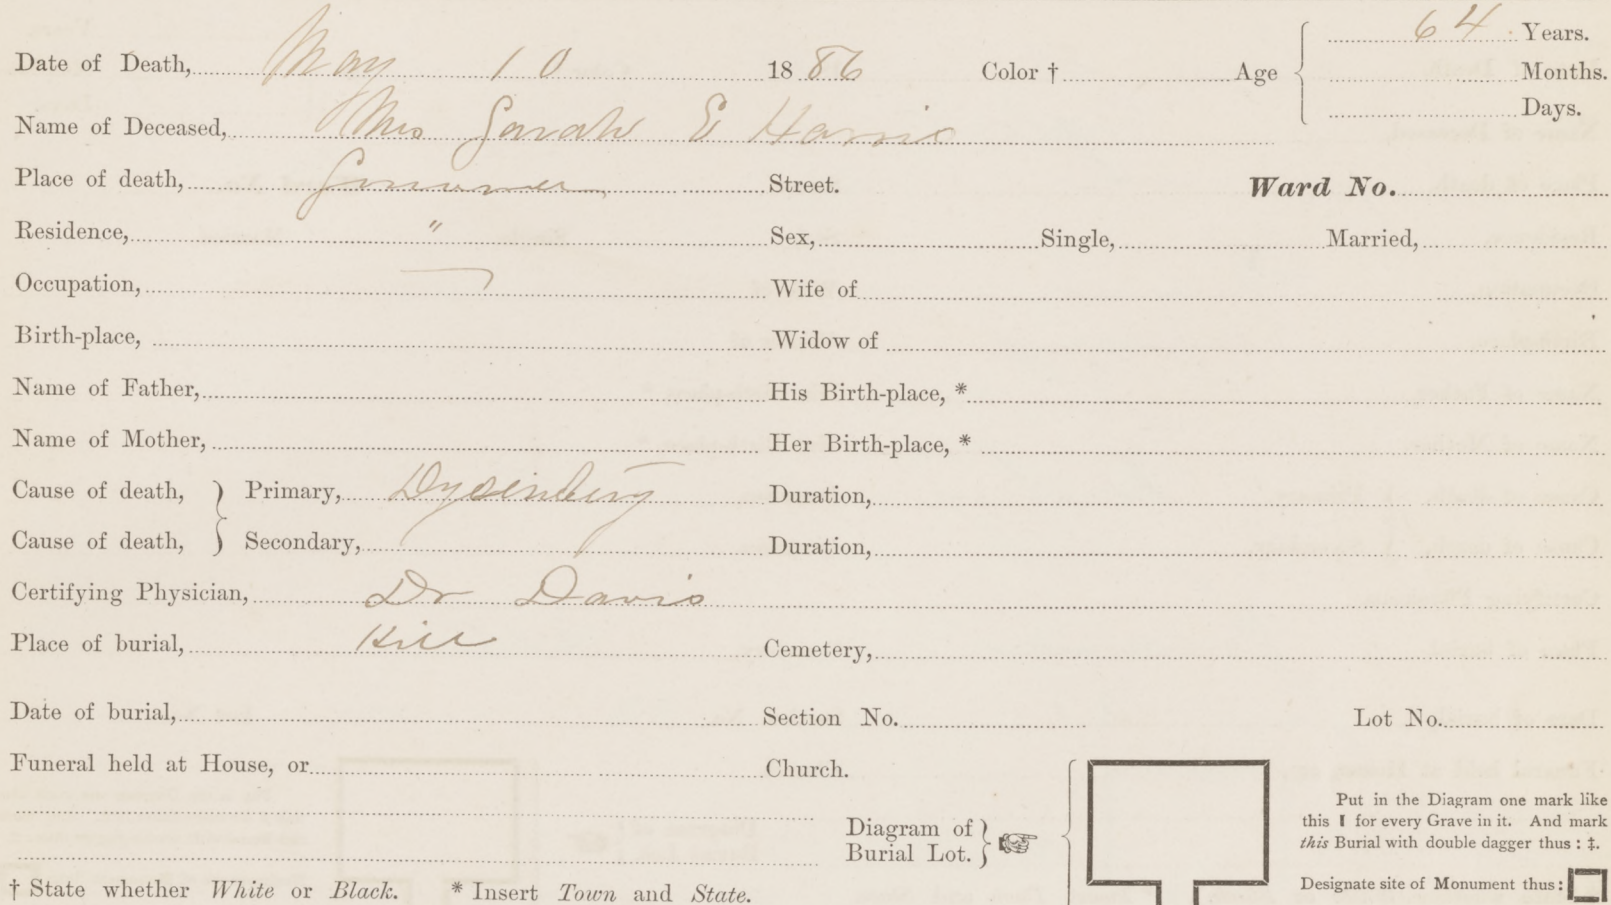 64 Years.
Date of Death, May 10 1886 Color † Age Months.
Days.
Name of Deceased, Mrs Sarah E Harris
Place of death, Street. Ward No.
Residence, " Sex, Single, Married,
Occupation, Wife of
Birth-place, Widow of
Name of Father, His Birth-place, *
Name of Mother, Her Birth-place, *
Cause of death, } Primary, Dysentery Duration,
Cause of death, } Secondary, Duration,
Certifying Physician, Dr Davis
Place of burial, Hill Cemetery,
Date of burial, Section No. Lot No.
Funeral held at House, or Church.
Put in the Diagram one mark like
this ❙ for every Grave in it. And mark
this Burial with double dagger thus : ‡.
Diagram of
Burial Lot. }
Designate site of Monument thus :
† State whether White or Black. * Insert Town and State.